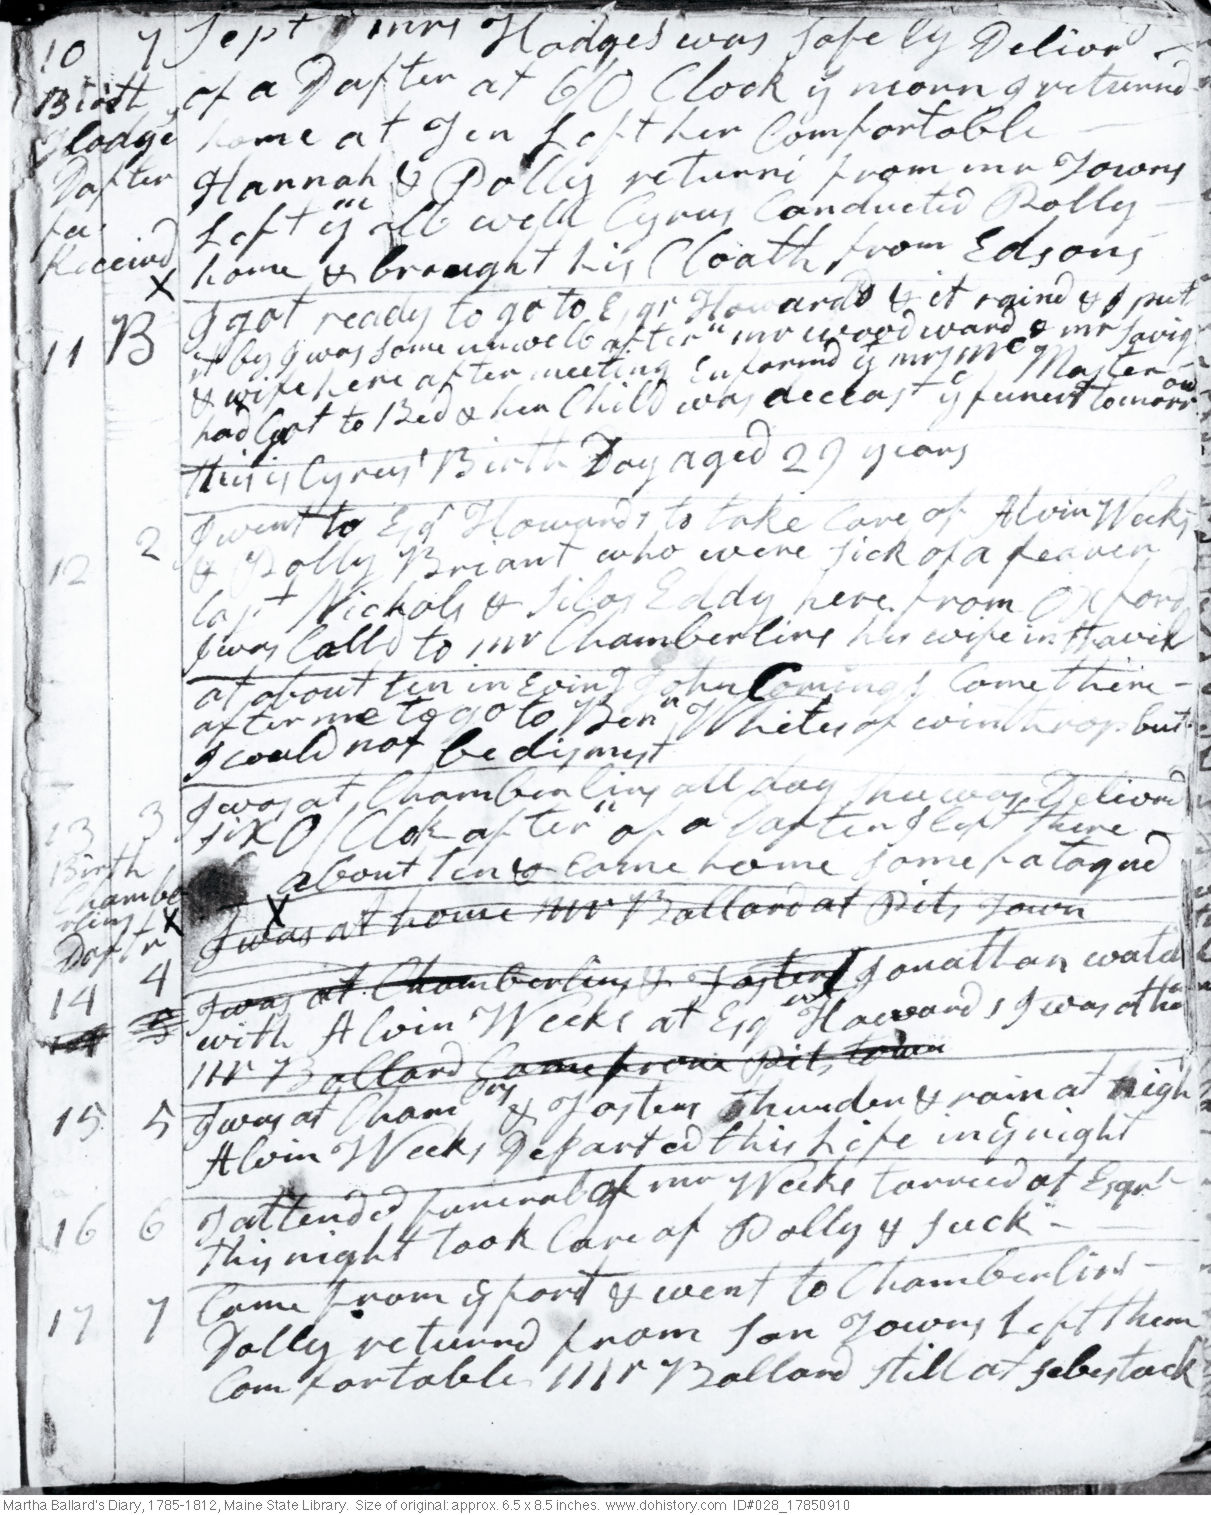 10 7 Sept mrs Hodges was safely Deliver
Birth of a Dafter at 6 O Clock ys morn I returnd
Hodge home at Ten Left her Comfortable
Dafter Hannah & Polly returnd from mr Towns
fee Left ym all well Cyrus Conducted Polly
Receivd home & brought his Cloath from Edsons
X
I got ready to go to Esqr Howards & it raind & I put
11 B it by I was some unwell after n mr woodward & mr Savig
& wife here after meeting Enformd ys mrs Mc Master
had Got to Bed & her Child was deceast ye funerl tomorrow
this is Cyrus' Birth Day aged 29 years
I went to Esqr Howards to take Care of Alvin Weeks
12 2 & Polly Briant who were sick of a feaver
Capt Nichols & Silas Eddy here from Oxford
I was Calld to mr Chamberlins his wife in travil
at about ten in Evin John Comings Came there
after me to go to Ben n Whites of winthrop but
I could not be dismist
I was at Chamberlins all day shee was Delivrd
13 3 six O Clok after n of a Dafter I left there
Birth about Ten & Came home some fatagud
Chamberlins Daftr X
X
I was at home mr Ballard at Pits Town
14 4 I was at Chamberlins & Fosters Jonathan watcht
with Alvin Weeks at Esqr Howards I was at home
mr Ballard Came from Pits town
15 5 I was at Cham & Fosters thunder & rain at nigh
Alvin Weeks Departed this Life in ys night
16 6 I attended funeral of mr Weeks tarried at Esqrs
this night took Care of Polly & suck
17 7 Came from ys fort & went to Chamberlins
Dolly returnd from son Towns Left them
Comfortable mr Ballard still at sebestuck
Martha Ballard's Diary, 1785-1812, Maine State Library. Size of original: approx. 6.5 x 8.5 inches. www.dohistory.com ID#028_17850910